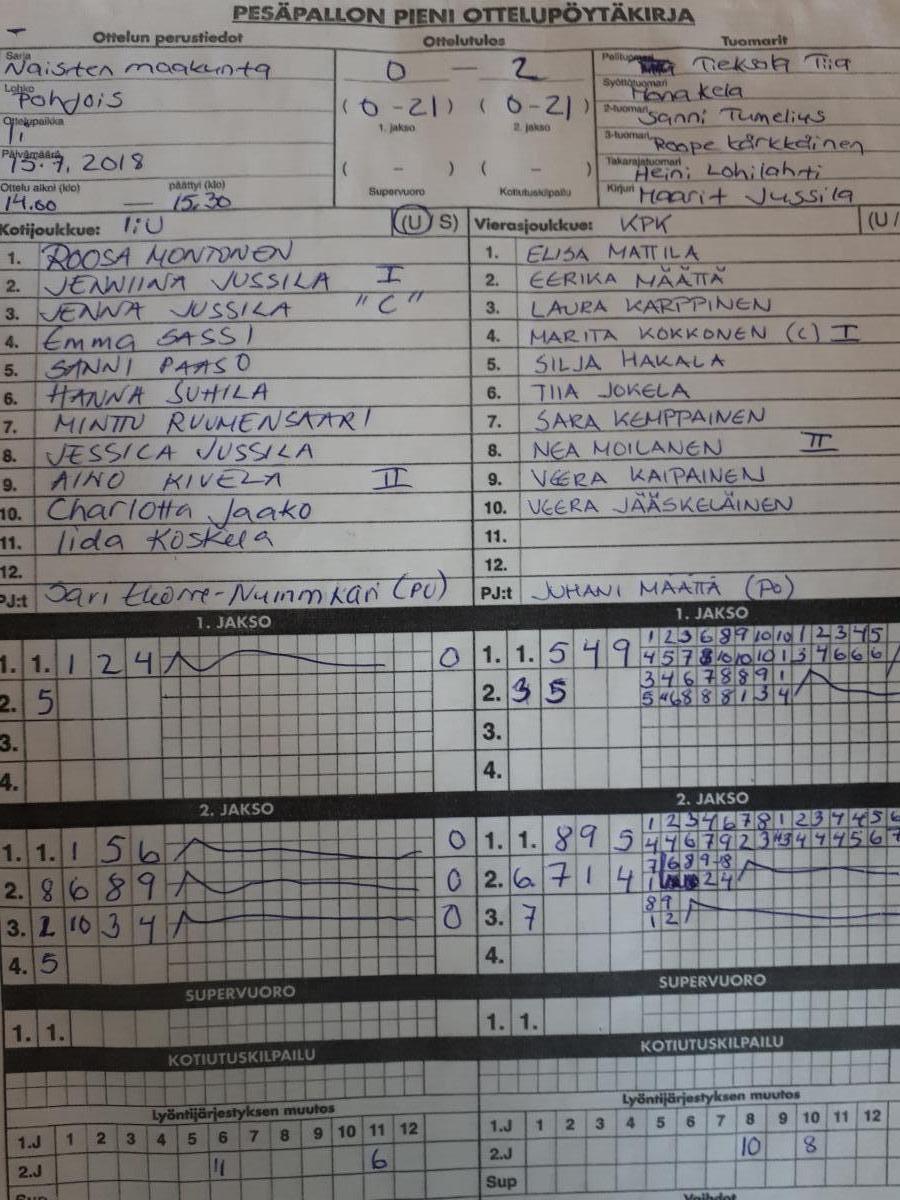 PESÄPALLON PIENI OTTELUPÖYTÄKIRJA
Ottelun perustiedot
Sarja
Naisten maakunta
Lohko
Pohjois
Ottelupaikka
Ii
Päivämäärä
15.7.2018
Ottelu alkoi (klo) päättyi (klo)
14.00 — 15.30
Ottelutulos
0 – 2
(0-21) (0-21)
1. jakso 2. jakso
( - ) ( - )
Supervuoro Kotiutuskilpailu
Tuomarit
Tieksola Tiia
Syöttötuomari
Mona Kela
2-tuomari
Sanni Tumelius
3-tuomari
Roope Kärkkäinen
Takarajatuomari
Heini Lohilahti
Kirjuri Maarit Jussila
Kotijoukkue: IiU (U S)
1. ROOSA MONTONEN
2. JENNIINA JUSSILA I
3. JENNA JUSSILA "C"
4. Emma SASSI
5. SANNI PAASO
6. HANNA SUHILA
7. MINTTU RUUMENSAARI
8. JESSICA JUSSILA
9. AINO KIVELÄ II
10. Charlotta Jaako
11. Iida Koskela
12.
PJ:t Sari (PU)
Vierasjoukkue: KPK (U /
1. ELISA MATTILA
2. EERIKA MÄÄTTÄ
3. LAURA KARPPINEN
4. MARITA KOKKONEN (C) I
5. SILJA HAKALA
6. TIIA JOKELA
7. SARA KEMPPAINEN
8. NEA MOILANEN II
9. VEERA KAIPAINEN
10. VEERA JÄÄSKELÄINEN
11.
12.
PJ:t JUHANI MÄÄTTÄ (PO)
1. JAKSO
1. 1. 1 2 4 0
2. 5
3.
4.
1. JAKSO
1 2 3 6 8 9 10 10 1 2 3 4 5
1. 1. 5 4 9 4 5 7 8 10 10 10 1 3 4 6 6 6
3 4 6 7 8 8 9 1
2. 3 5 5 4 6 8 8 8 1 3 4
3.
4.
2. JAKSO
1. 1. 1 5 6 0
2. 8 6 8 9 0
3. 2 10 3 4 0
4. 5
2. JAKSO
1 2 3 4 6 7 8 1 2 3 4 4 5 6
1. 1. 8 9 5 4 4 6 7 9 2 3 4 4 4 5 6 7
2. 6 7 1 4 2 4
8 9
3. 7 1 2
4.
SUPERVUORO
1. 1.
SUPERVUORO
1. 1.
KOTIUTUSKILPAILU
KOTIUTUSKILPAILU
Lyöntijärjestyksen muutos
1.J 1 2 3 4 5 6 7 8 9 10 11 12
2.J 11 6
Lyöntijärjestyksen muutos
1.J 1 2 3 4 5 6 7 8 9 10 11 12
2.J 10 8
Sup
Vaihdot